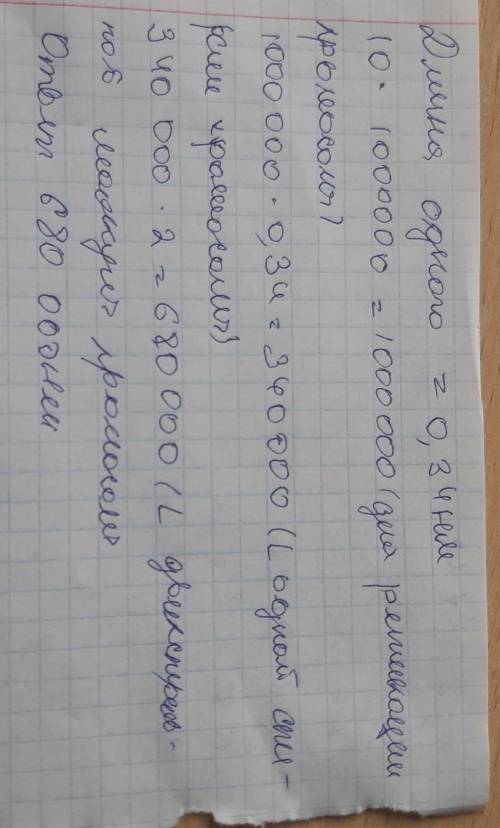 Длина одного = 0,34нм
10 · 1000000 = 1000000 (для репликации
хромосомы)
1000 000 · 0,34 = 340000 (L одной спи-
рали хромосомы)
340 000 · 2 = 680 000 (L двухспираль-
ной молекулы хромосомы
Ответ 680 000нм